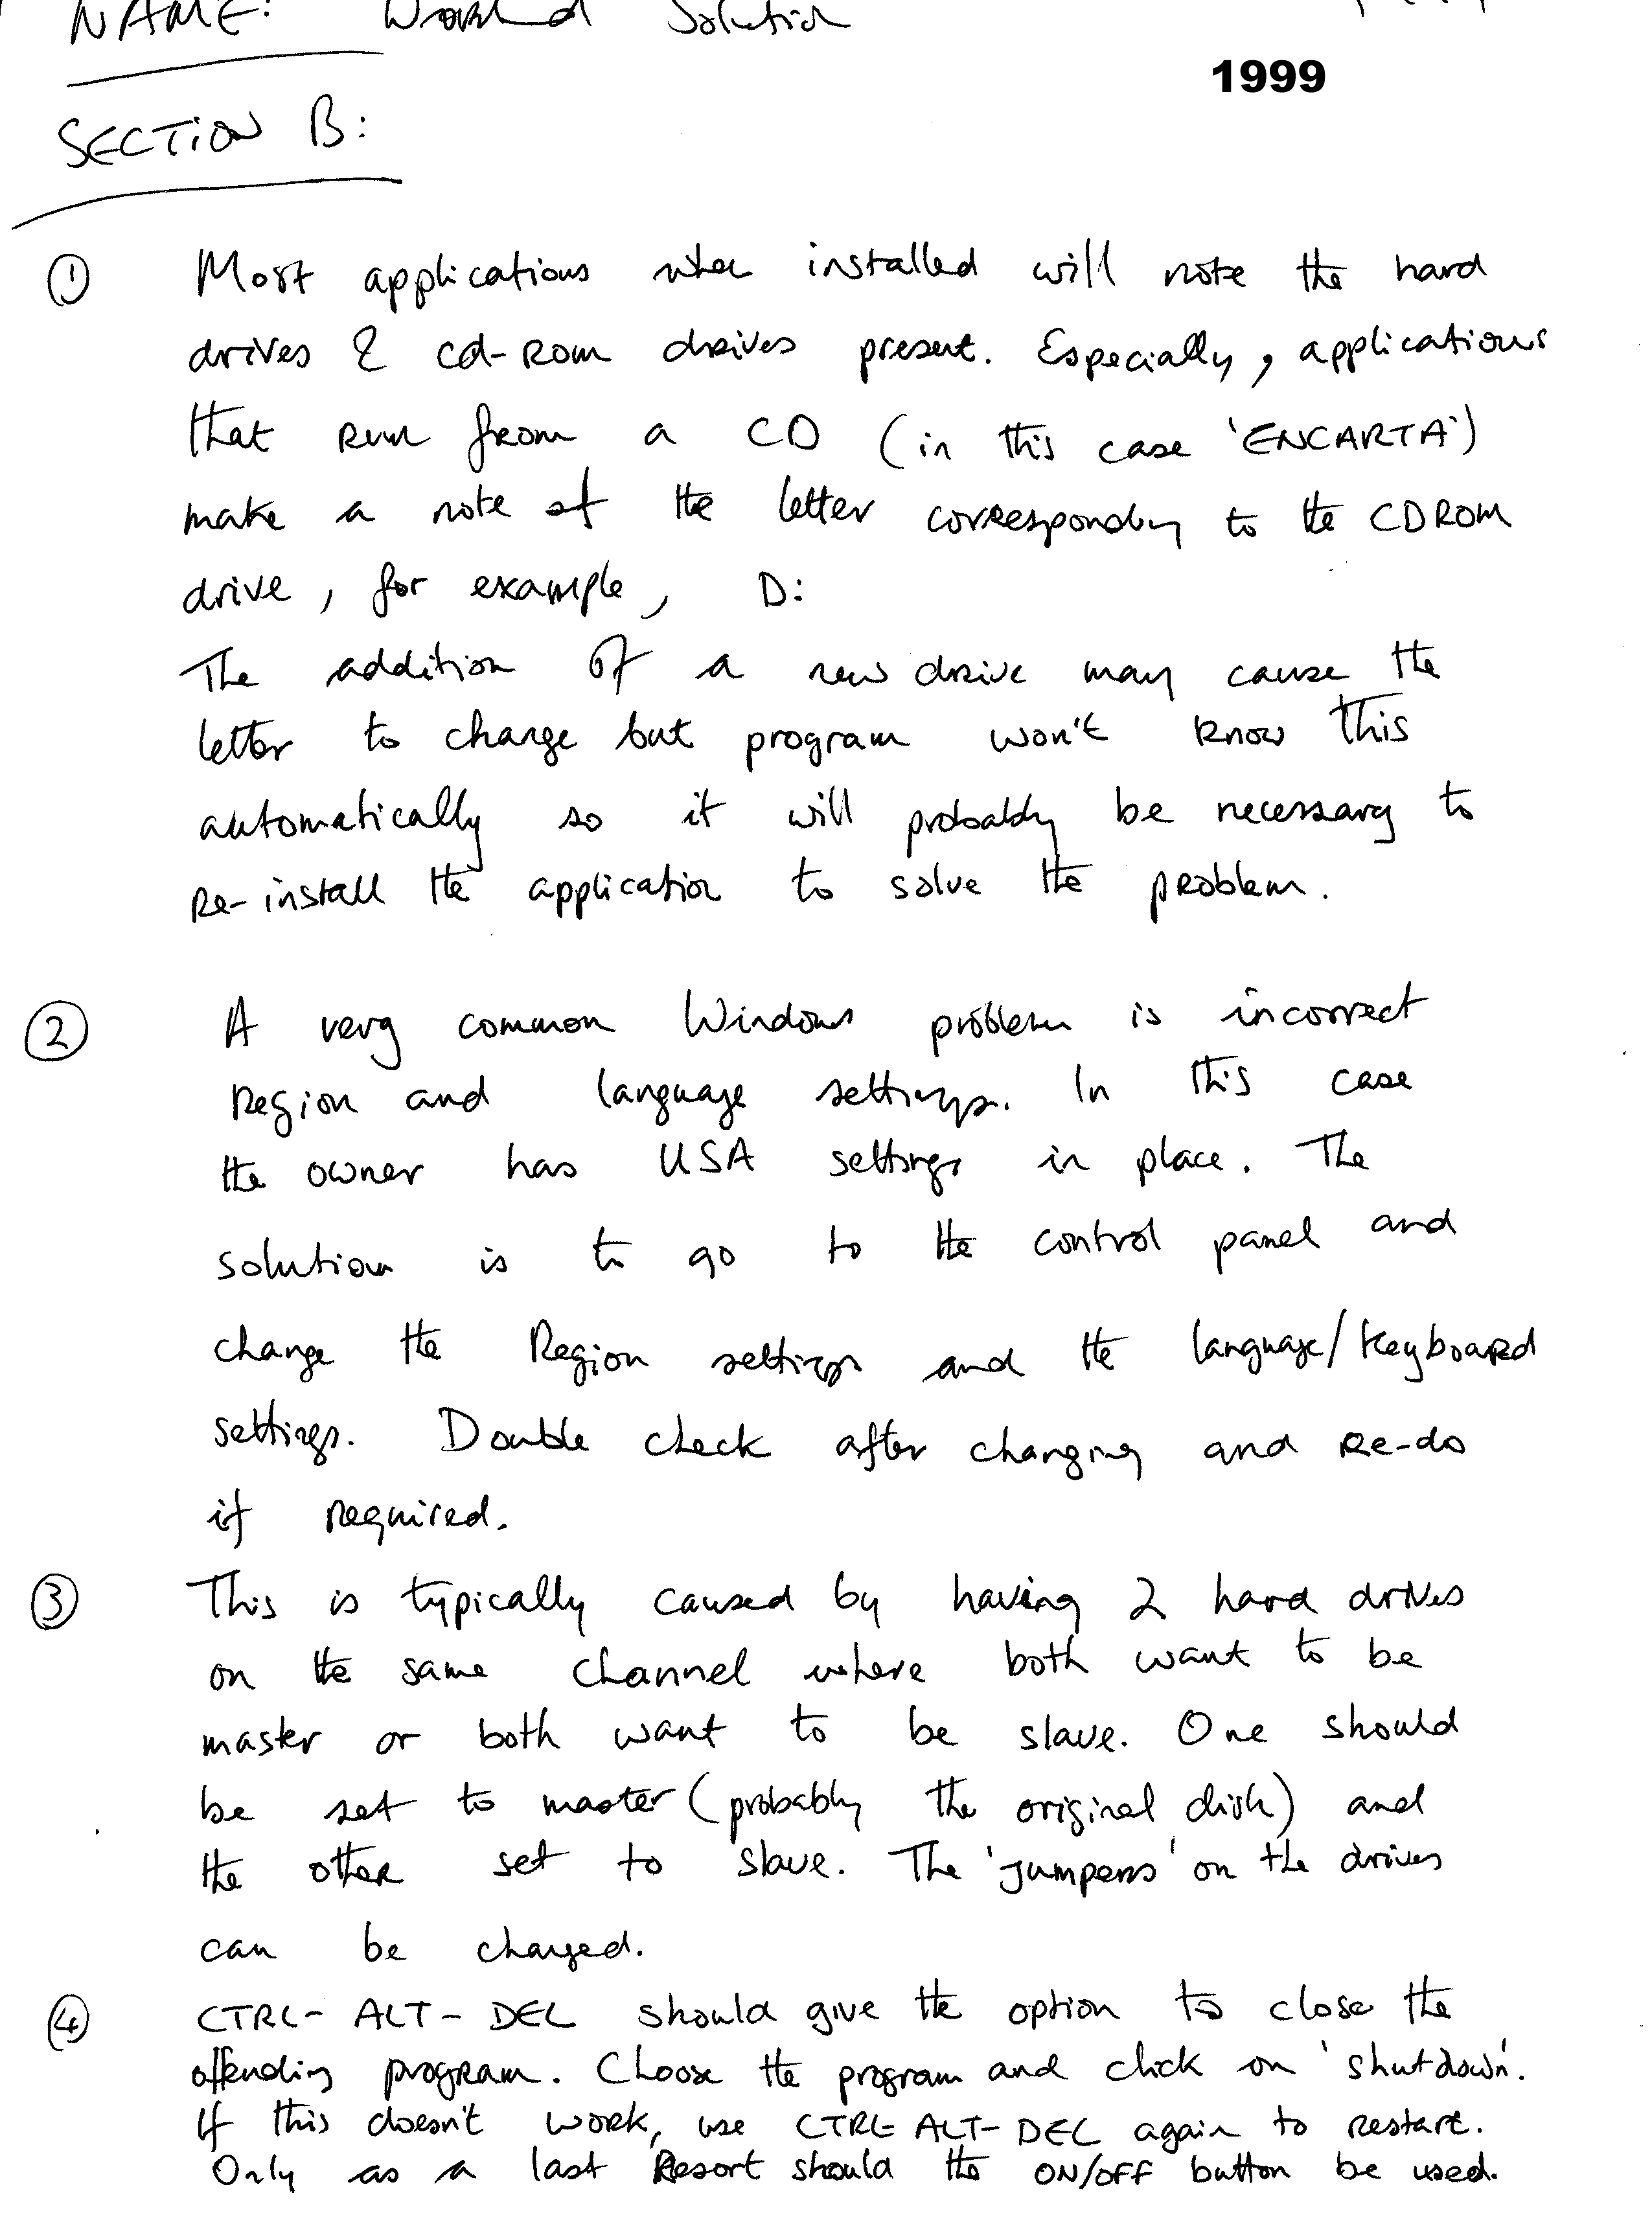 NAME: Worked Solution
1999
SECTION B:
① Most applications when installed will note the hard
drives & cd-ROM drives present. Especially, applications
that run from a CD (in this case 'ENCARTA')
make a note of the letter corresponding to the CDROM
drive, for example, D:
The addition of a new drive may cause the
letter to change but program won't know this
automatically so it will probably be necessary to
Re-install the application to solve the problem.
② A very common Windows problem is incorrect
Region and language settings. In this case
the owner has USA settings in place. The
solution is to go to the control panel and
change the Region settings and the language/keyboard
settings. Double check after changing and Re-do
if required.
③ This is typically caused by having 2 hard drives
on the same channel where both want to be
master or both want to be slave. One should
be set to master (probably the original disk) and
the other set to slave. The 'jumpers' on the drives
can be changed.
④ CTRL-ALT-DEL should give the option to close the
offending program. Choose the program and click on 'shutdown'.
If this doesn't work, use CTRL-ALT-DEL again to restart.
Only as a last Resort should the ON/OFF button be used.